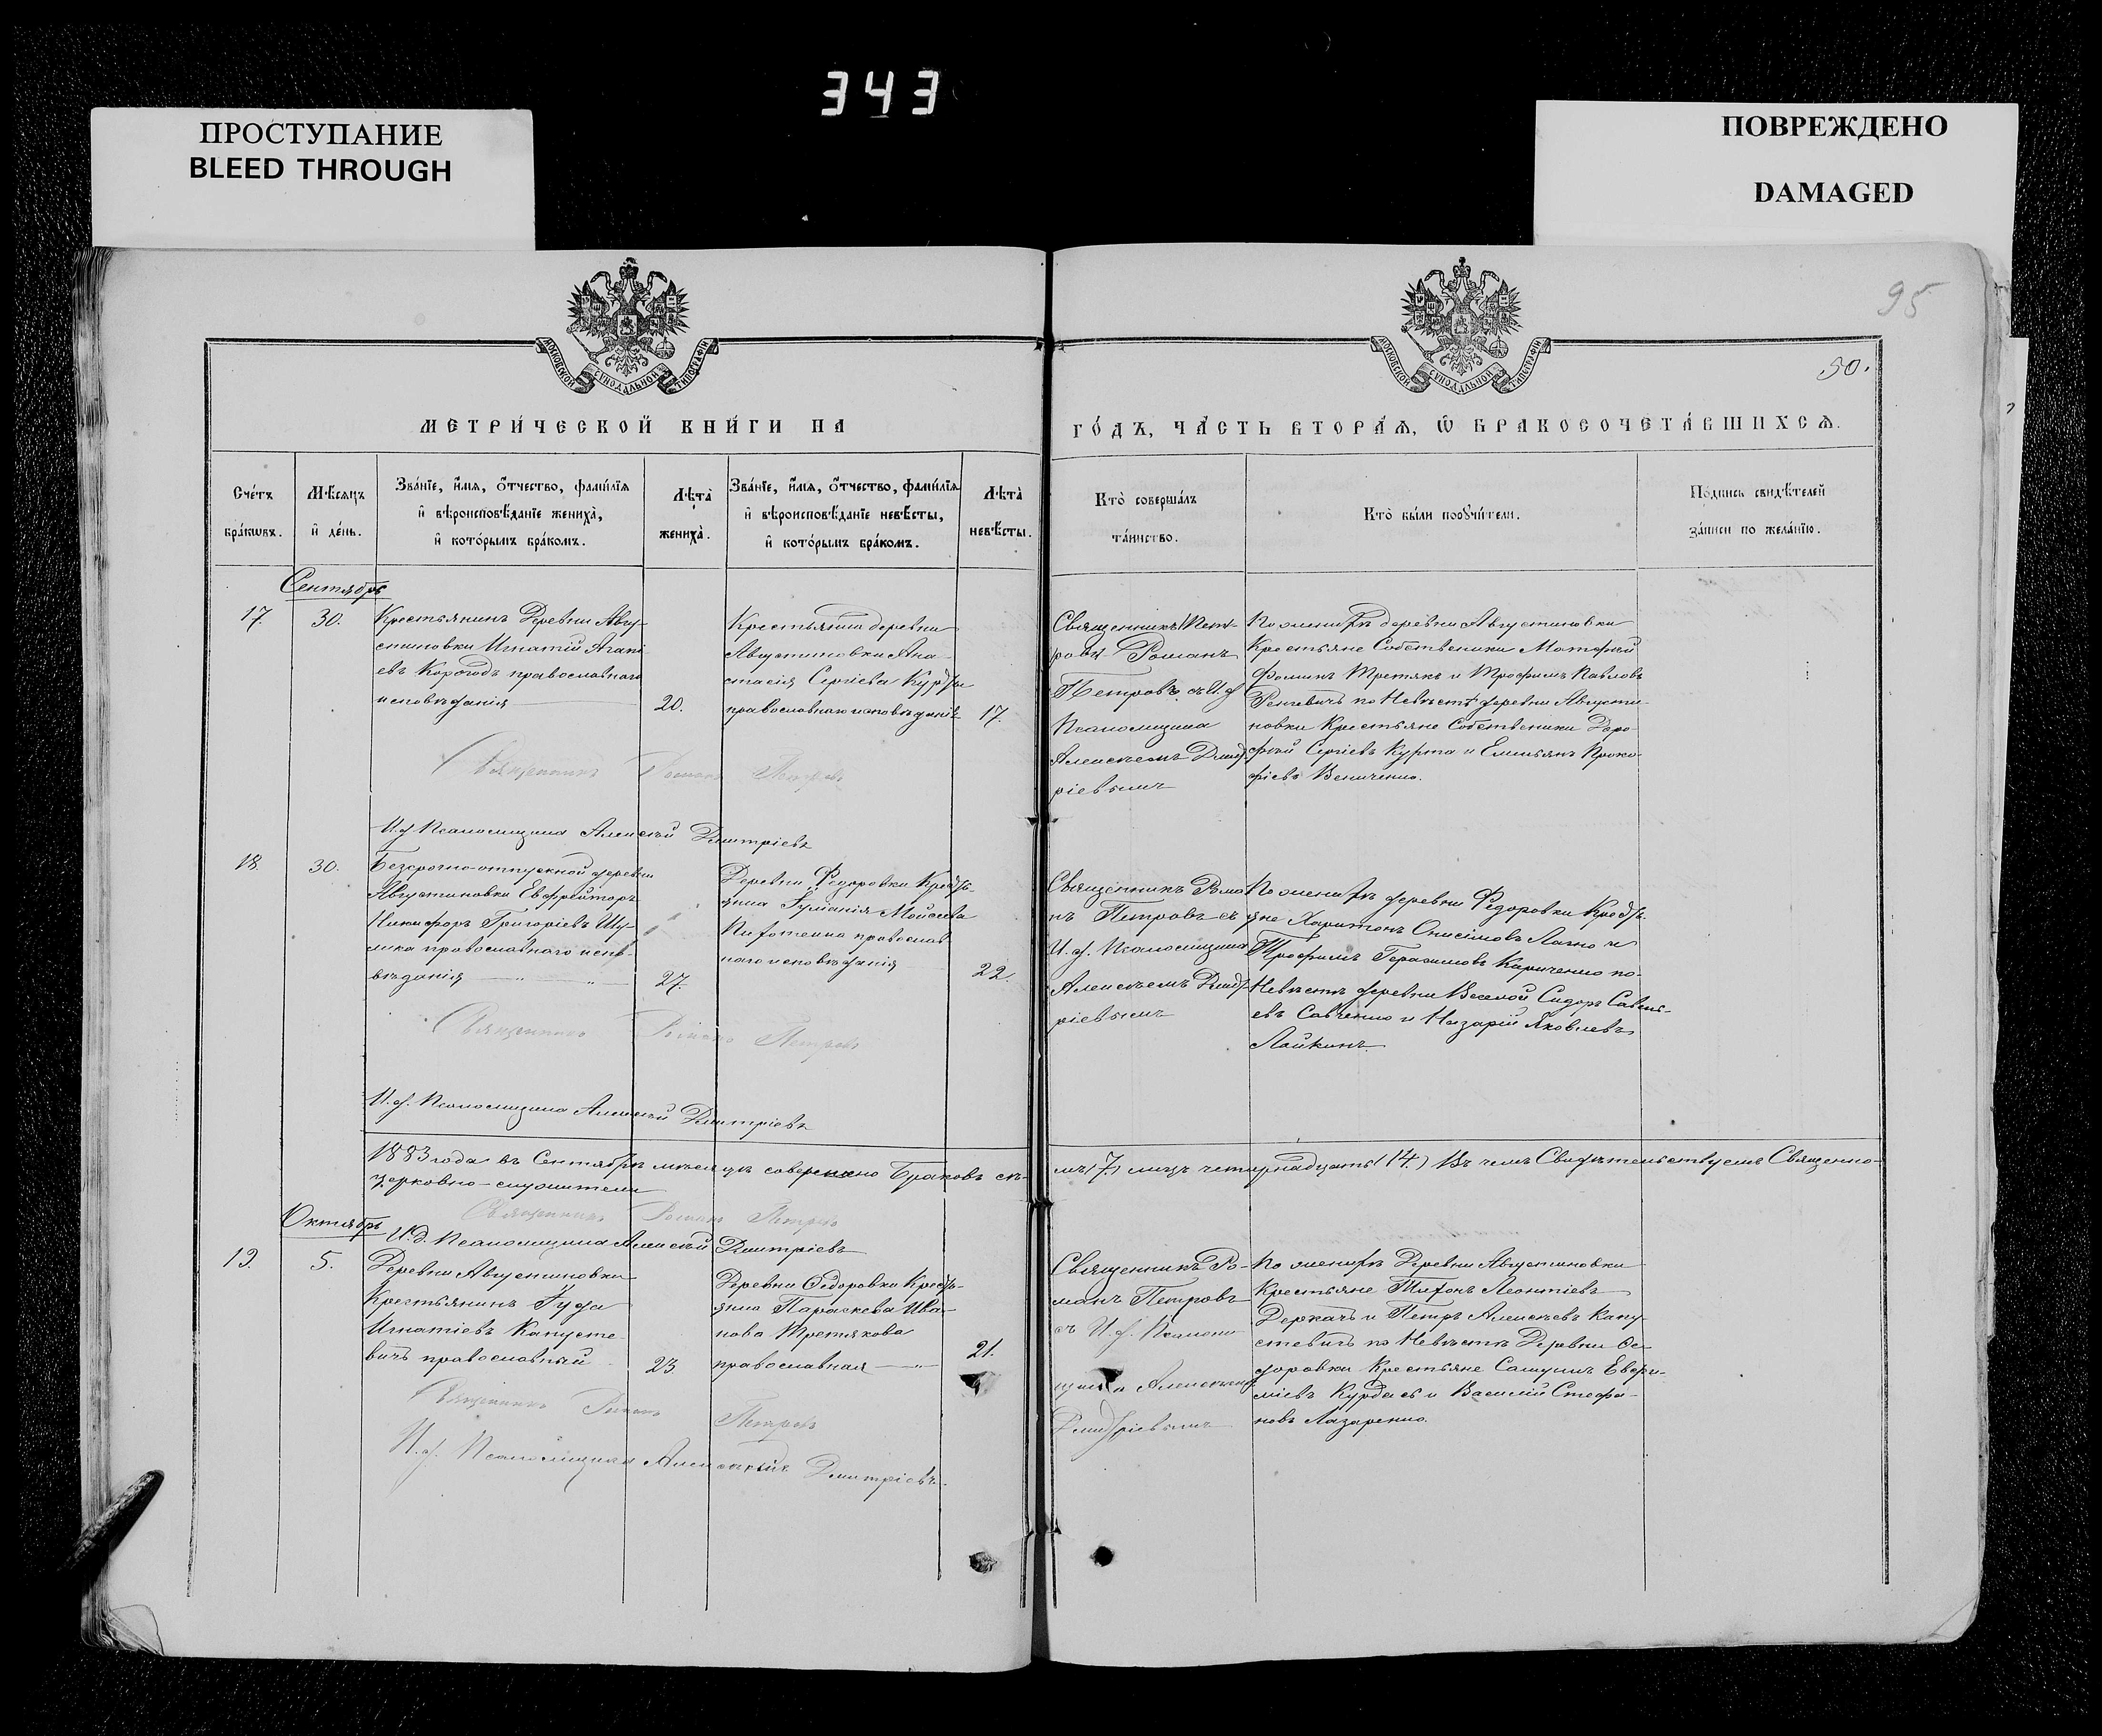 343
ПРОСТУПАНИЕ
BLEED THROUGH
ПОВРЕЖДЕНО
DAMAGED
95
50.
МОСКОВСКОЙ СѴНОДАЛЬНОЙ ТИПОГРАФІИ
МОСКОВСКОЙ СѴНОДАЛЬНОЙ ТИПОГРАФІИ
МЕТРИ́ЧЕСКОЙ КНИ́ГИ НА
ГО́ДЪ, ЧА́СТЬ ВТОРА́Ѧ, Ѡ БРАКОСОЧЕТА́ВШИХСѦ.
Сче́тъ
бра́кѡвъ.
Мѣ́сѧцъ
и҆ де́нь.
Зва́нїе, и҆́мѧ, о҆́тчество, фамѝлїѧ
и҆ вѣроисповѣ́данїе жениха̀,
и҆ кото́рымъ бра́комъ.
Лѣ́та
жениха̀.
Зва́нїе, и҆́мѧ, о҆́тчество, фамѝлїѧ
и҆ вѣроисповѣ́данїе невѣ́сты,
и҆ кото́рымъ бра́комъ.
Лѣ́та
невѣ́сты.
Кто̀ соверша́лъ
та́инство.
Кто̀ бы́ли порꙋчи́тели.
По́дпись свидѣ́телей
за́писи по жела́нїю.
Сентябрь
17.
30.
Крестьянинъ Деревни Авгу-
стиновки Игнатій Агапі
евъ Корогодъ православнаго
исповѣданія
20.
Крестьянка деревни
Августиновки Ана-
стасія Сергіева Курды
православнаго исповѣданія
17.
Священникъ
Романъ
Петровъ съ И. ф
Псаломщика
Алексѣемъ Дмит
ріевымъ
По женихѣ деревни Августиновки
Крестьяне Собственики Матфей
Фоминъ Третякъ и Трофимъ Павловъ
по Невѣстѣ деревни Августи-
новки Крестьяне Собственики Доро-
фей Сергіевъ Курта и Емельянъ Проко-
фіевъ Величенко.
Священникъ Романъ Петровъ
И. ф Псаломщика Алексѣй Дмитріевъ
18.
30.
Безсрочно-отпускной деревни
Августиновки Ефрейторъ
Никифоръ Григоріевъ Шу-
лика православнаго испо-
вѣданія
27.
Деревни Федоровки Кресть-
янка Гулианія Мойсеева
православ
наго исповѣданія
22.
Священникъ Рома
нъ Петровъ съ
И. ф. Псаломщика
Алексѣемъ Дмит
ріевымъ
По женихѣ деревни Федоровки Кресть
яне Харитонъ Онисимовъ Лагно и
Трофимъ Герасимовъ Кириченко по
Невѣстѣ деревни Веселой Сидоръ Савель-
евъ Савченко и Назарій Яковлевъ
Лайкинъ.
Священникъ Романъ Петровъ
И. ф. Псаломщика Алексѣй Дмитріевъ
1883 года въ Сентябрѣ мѣсяцѣ совершено Браковъ се-
мъ (7) лицъ четырнадцать (14.) Въ чемъ Свидѣтельствуемъ Священно-
церковно-служители
Священникъ Романъ Петровъ
И. д. Псаломщика Алексѣй Дмитріевъ
Октябрь
19.
5.
Деревни Августиновки
Крестьянинъ Гуда
Игнатіевъ Капусте-
вичъ православный
23.
Деревни Федоровки Кресть-
янка Параскева Ива-
нова Третякова
православная
21.
Священникъ Ро-
манъ Петровъ
съ И. ф. Псалом
щика Алексѣемъ
Дмитріевымъ
По женихѣ Деревни Августиновки
Крестьяне Тихонъ Леонтіевъ
Деркачъ и Петръ Алексѣевъ Капу-
стевичъ по Невѣстѣ Деревни Фе-
доровки Крестьяне Самуилъ Евфи-
міевъ Курдасъ и Василій Стефа-
новъ Лазаренко.
Священникъ Романъ Петровъ
И. ф. Псаломщика Алексѣй Дмитріевъ.